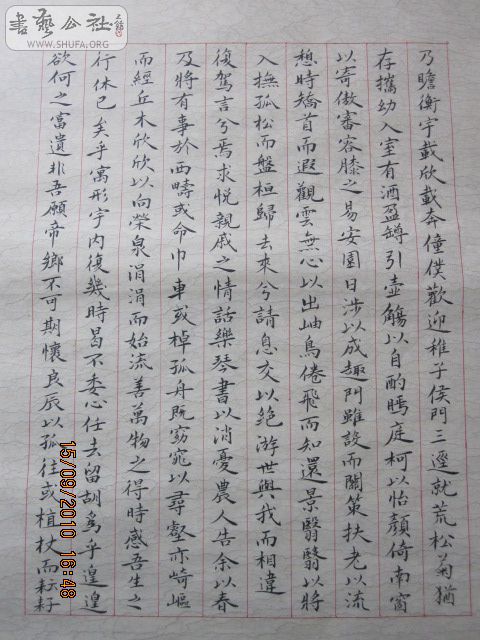 書藝公社
WWW.SHUFA.ORG
乃瞻衡宇載欣載奔僮僕歡迎稚子侯門三逕就荒松菊猶
存攜幼入室有酒盈罇引壺觴以自酌眄庭柯以怡顏倚南窗
以寄傲審容膝之易安園日涉以成趣門雖設而關策扶老以流
憩時矯首而遐觀雲無心以出岫鳥倦飛而知還景翳翳以將
入撫孤松而盤桓歸去來兮請息交以絕游世與我而相違
復駕言兮焉求悅親戚之情話樂琴書以消憂農人告余以春
及將有事於西疇或命巾車或棹孤舟既窈窕以尋壑亦崎嶇
而經丘木欣欣以向榮泉涓涓而始流善萬物之得時感吾生之
行休已矣乎寓形宇內復幾時曷不委心任去留胡為乎遑遑
欲何之富遺非吾願帝鄉不可期懷良辰以孤往或植杖而耘耔
15/09/2010 16:48